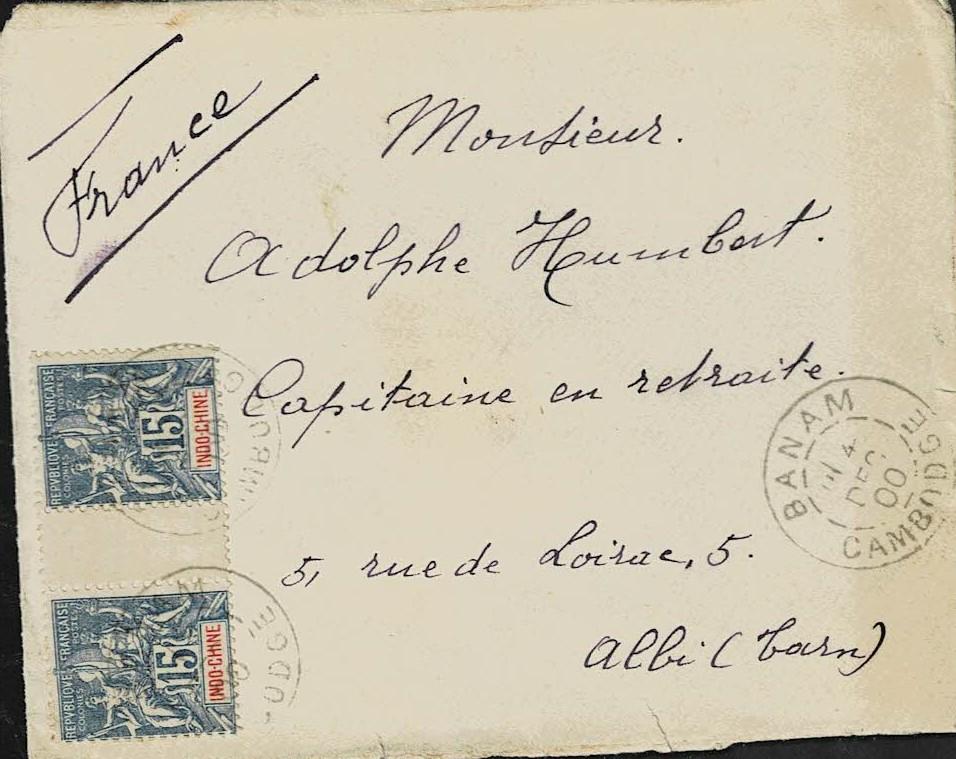 France
Monsieur.
Adolphe Humbert.
Capitaine en retraite.
5, rue de Loirac, 5.
Albi (Tarn)
BANAM
4
DEC
00
CAMBODGE
REPVBLIQVE FRANÇAISE
COLONIES POSTES
15
INDO-CHINE
REPVBLIQVE FRANÇAISE
COLONIES POSTES
15
INDO-CHINE